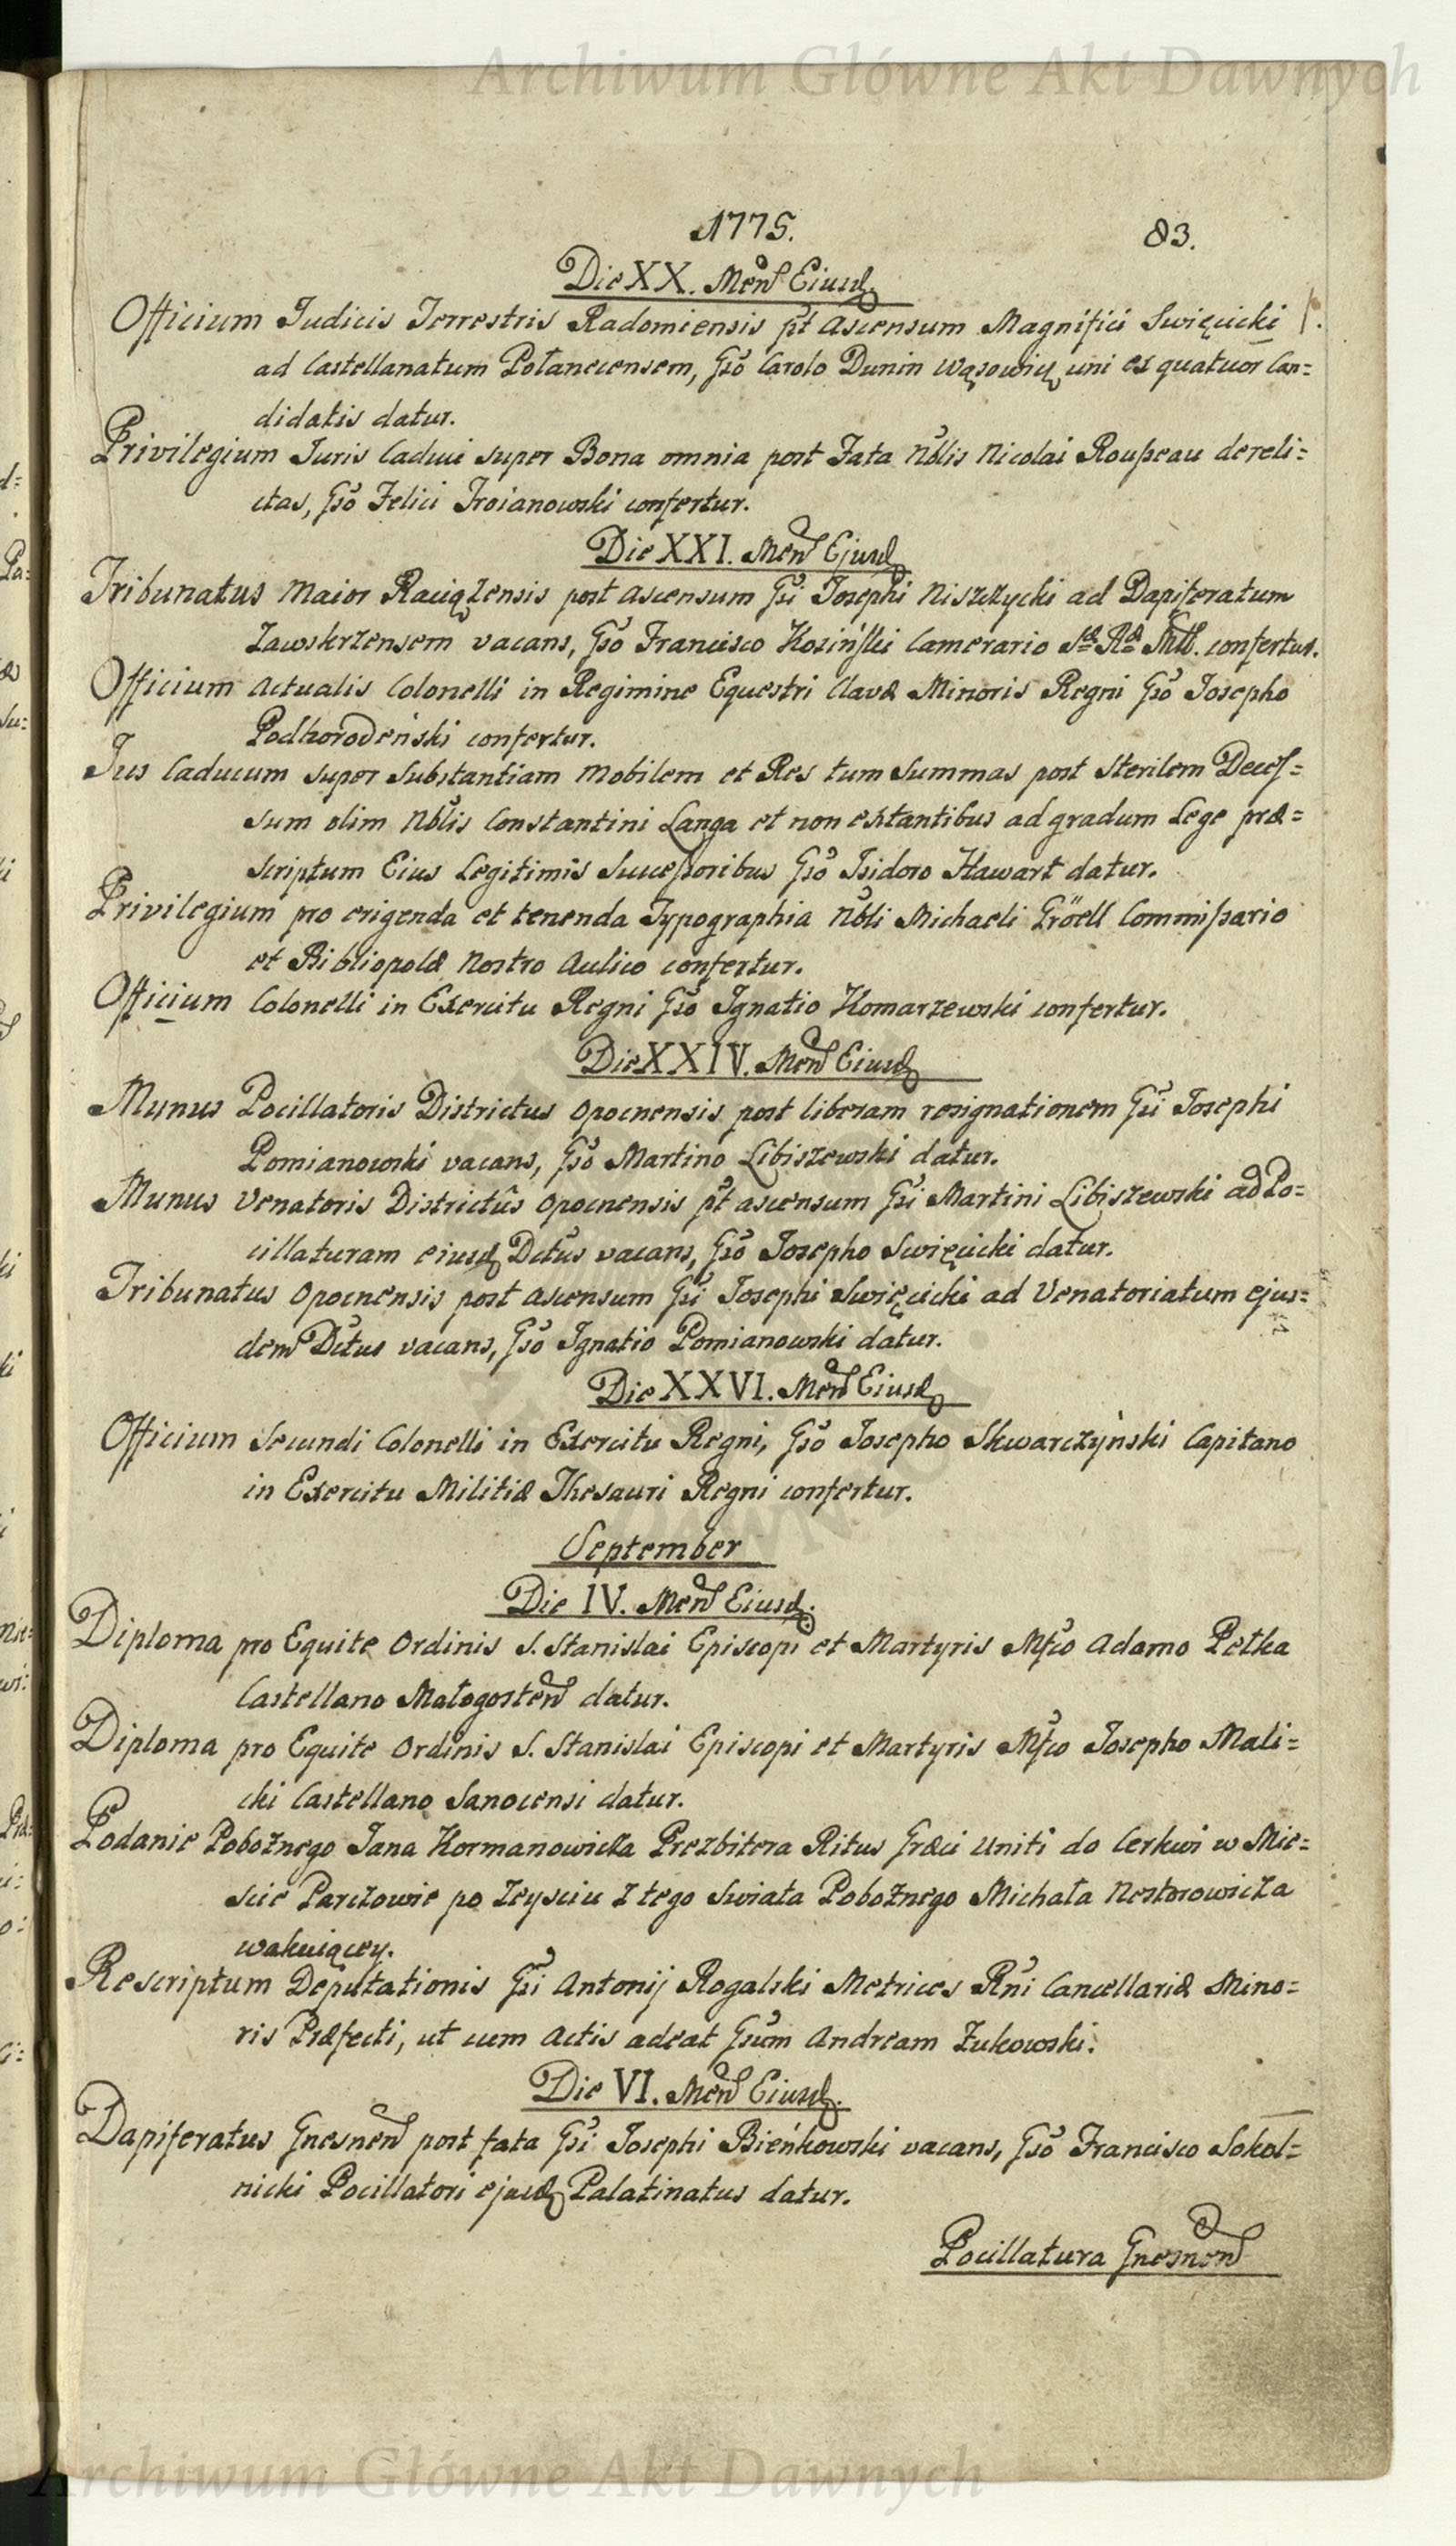 Archiwum Główne Akt Dawnych
1775. 83.
Die XX. Men Eiusd.
Officium Judicis Terrestris Radomiensis pt Ascensum Magnifici Swięcicki
ad Castellanatum Połanecensem, Gso Carolo Dunin Wąsowicz uni ex quatuor Can=
didatis datur.
Privilegium Juris Caduci super Bona omnia post Fata Nblis Nicolai Rousseau dereli=
ctas, Gso Felici Troianowski confertur.
Die XXI. Men Ejusd
Tribunatus Maior Raciązensis post Ascensum Gsi Josephi Niszczycki ad Dapiferatum
Zawskrzensem vacans, Gso Francisco Kosiński Camerario Sæ Ræ Mtt. confertur.
Officium Actualis Colonelli in Regimine Equestri Clavæ Minoris Regni Gso Josepho
Podhorodeński confertur.
Jus Caducum super Substantiam Mobilem et Res tum Summas post sterilem Deces=
sum olim Nblis Constantini Langa et non extantibus ad gradum Lege præ=
scriptum Eius Legitimis Successoribus Gso Isidoro Hawart datur.
Privilegium pro erigenda et tenenda Typographia Nbli Michaeli Gröell Commissario
et Bibliopolæ Nostro Aulico confertur.
Officium Colonelli in Exercitu Regni Gso Ignatio Komarzewski confertur.
Die XXIV. Men Eiusd
Munus Pocillatoris Districtus Opocnensis post liberam resignationem Gsi Josephi
Pomianowski vacans, Gso Martino Libiszewski datur.
Munus Venatoris Districtûs Opocnensis pt ascensum Gsi Martini Libiszewski ad Po=
cillaturam eiusd Dctus vacans, Gso Josepho Swięcicki datur.
Tribunatus Opocnensis post Ascensum Gsi Josephi Swięcicki ad Venatoriatum ejus=
dem Dctus vacans, Gso Ignatio Pomianowski datur.
Die XXVI. Men Eiusd
Officium Secundi Colonelli in Exercitu Regni, Gso Josepho Skwarczyński Capitano
in Exercitu Militiæ Thesauri Regni confertur.
September
Die IV. Men Eiusd.
Diploma pro Equite Ordinis S. Stanislai Episcopi et Martyris Mfco Adamo Petka
Castellano Małogosten datur.
Diploma pro Equite Ordinis S. Stanislai Episcopi et Martyris Mfco Josepho Mali=
cki Castellano Sanocensi datur.
Podanie Pobożnego Jana Hormanowicza Prezbitera Ritus Græci Uniti do Cerkwi w Mie=
scie Parczowie po Zeysciu z tego Swiata Pobożnego Michała Nestorowicza
wakuiącey.
Rescriptum Deputationis Gsi Antonij Rogalski Metrices Rni Cancellariæ Mino=
ris Præfecti, ut cum Actis adeat Gsum Andream Żukowski.
Die VI. Men Eiusd.
Dapiferatus Gnesnen post fata Gsi Josephi Bieńkowski vacans, Gso Francisco Sokol=
nicki Pocillatori ejusd Palatinatus datur.
Pocillatura Gnesnen
Archiwum Główne Akt Dawnych